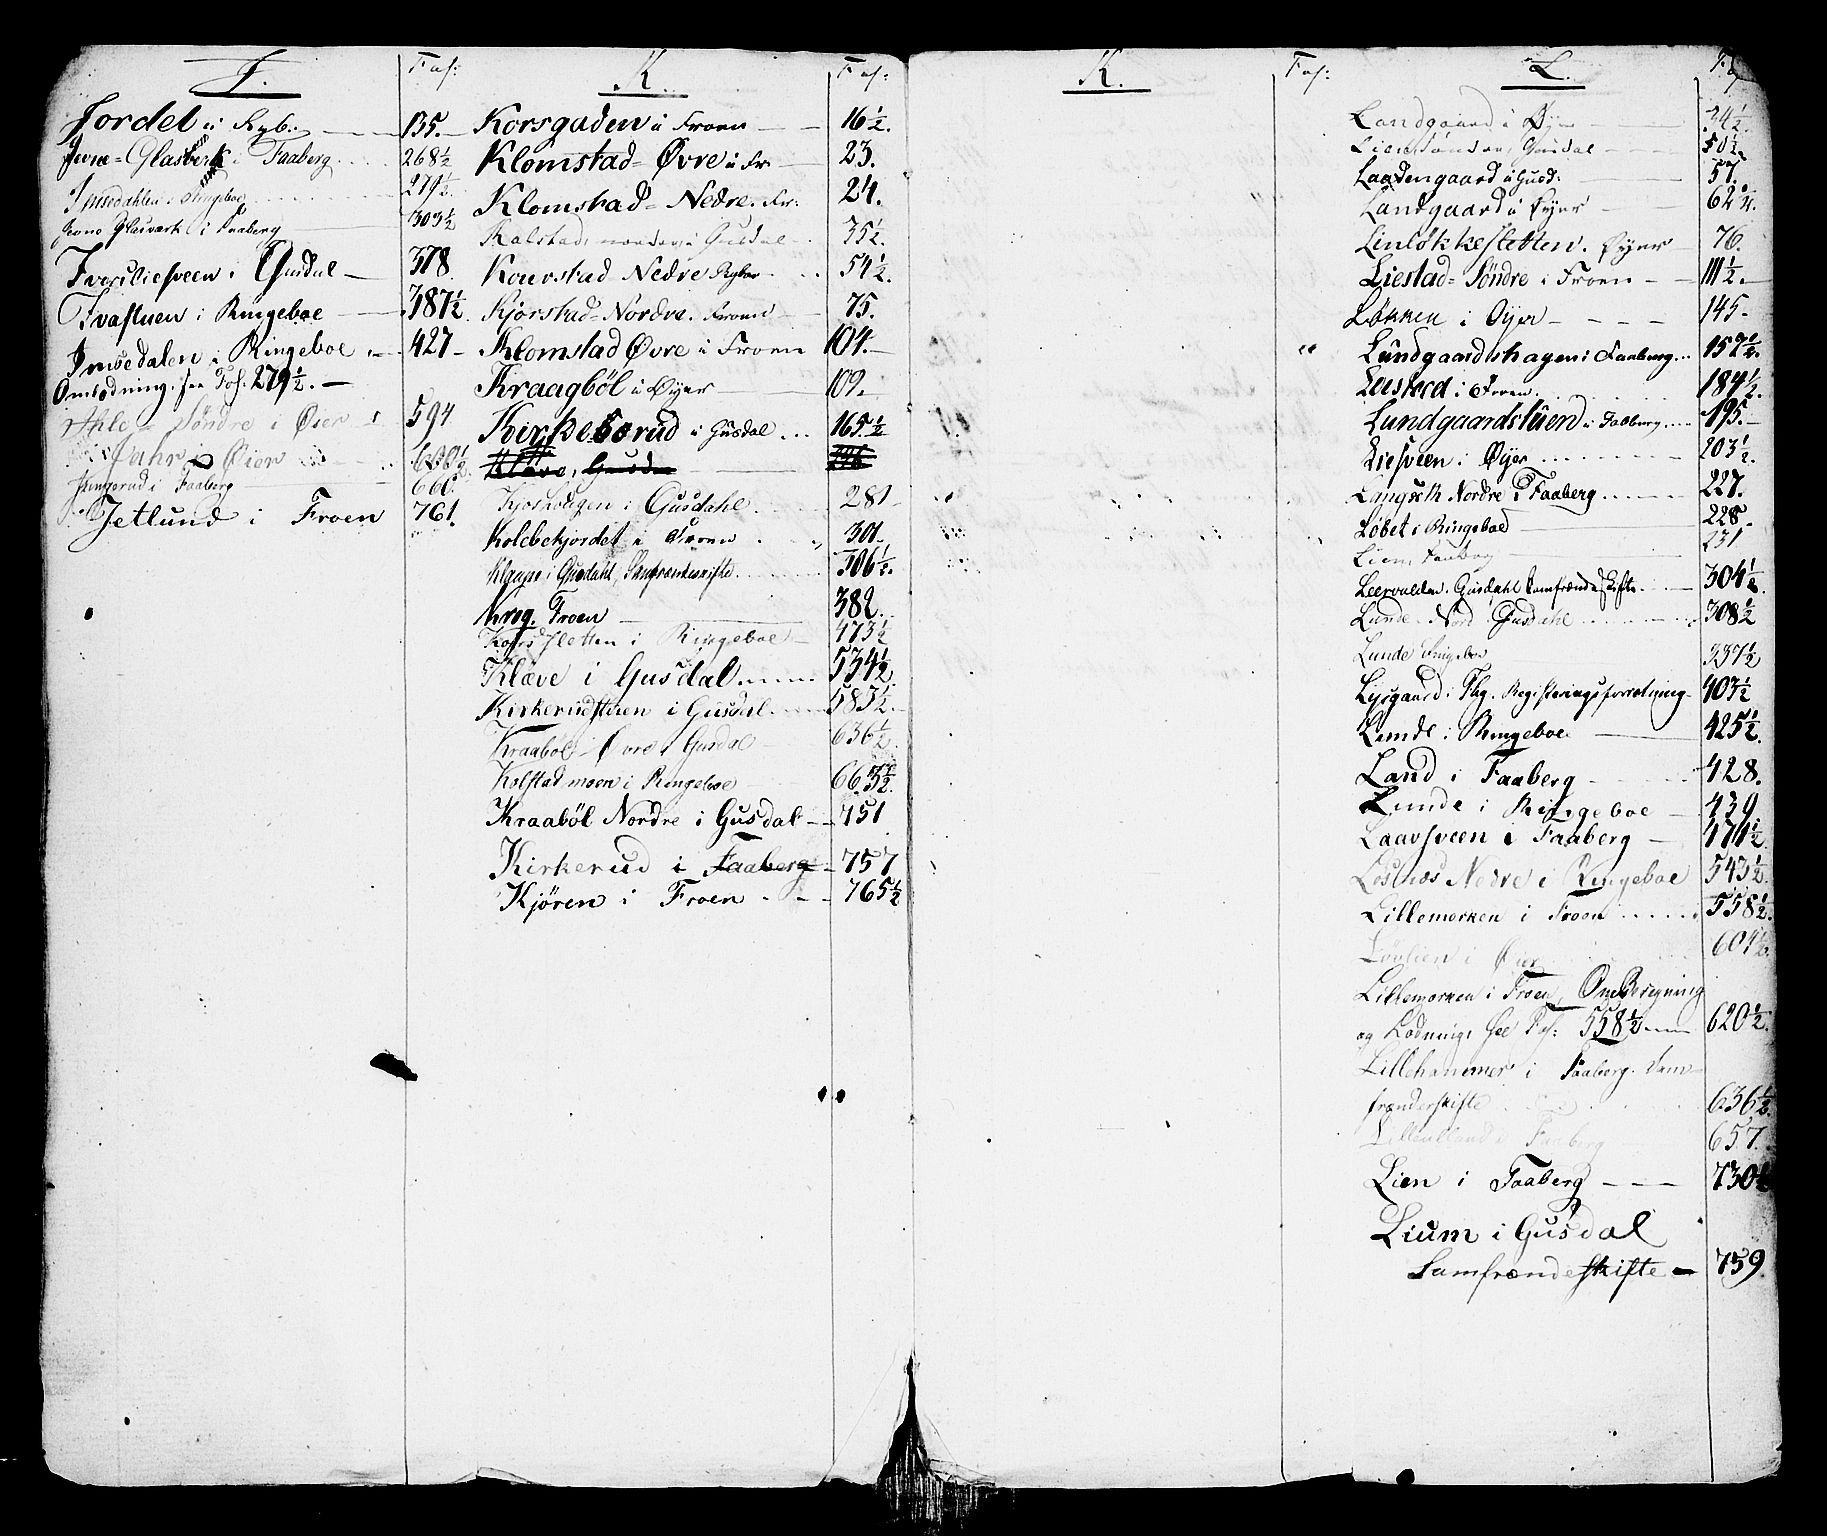 I. Fol:
Jordet i Ryb: 135.
Jevne-Glasverk i Faaberg 268 1/2
Imsdahlen i Ringeboe 279 1/2
Jevne Glasværk i Faaberg 303 1/2
Iversliesveen i Gusdal 378
Ivastuen i Ringeboe 387 1/2
Imsdalen i Ringeboe 427
Omlodning, see Fol: 279 1/2.
Søndre i Øier 594
i Øier
Jungerud i Faaberg 660
Jetlund i Froen 761.
K. Fol:
Korsgaden i Froen 16 1/2.
Klomstad-Øvre i Fr 23.
Klomstad-Nedre. Fr: 24.
Kalstad, nordre, i Gusdal 35 1/2.
Kourstad Nedre Ryboe 54 1/2.
Kjorstad-Nordre. Froen 75.
Klomstad Øvre i Froen 104.
Kraagböl i Øyer 109.
Kirkeborud i Gusdal 165 1/2
Klæve, Gusda
i Gusdahl 281
Kolebekjordet i Froen 301.
Klappe i Gusdahl, Samfrændeskifte 306 1/2.
Krog. Froen 382.
Korssletten i Ringeboe 473 1/2
Klæve i Gusdal 534 1/2
Kirkerudstuen i Gusdal 583 1/2.
Kraaböl Øvre i Gusdal 636 1/2
Kolstadmoen i Ringeboe 663 1/2.
Kraaböl Nordre i Gusdal 751
Kirkerud i Faaberg 757
Kjören i Froen 765 1/2
K. Fol:
L. Fol
Landgaard i Øyer 24 1/2.
Lien søndre, Gusdal 50 1/2.
Laadengaard i Gusd: 57.
Landgaard i Øyer 62 1/2.
Linløkkesletten. Øyer 76.
Liestad-Söndre i Froen 111 1/2.
Løkken i Øyer 145.
Lundgaardshagen i Faaberg 157 1/2.
Leistad i Froen. 184 1/2.
Lundgaardstuen i Faaberg 195.
Liesveen i Øyer 203 1/2.
Langseth Nordre i Faaberg 227.
Løbet i Ringeboe 228.
Lien, Faaberg 231
Leervalden. Gusdahl Samfrændeskifte. 304 1/2
Lunde Nord Gusdahl 308 1/2
Lunde Ringeboe 337 1/2
Lysgaard i Fbg. Registeringsforretning 403 1/2
Lunde i Ringeboe. 425 1/2.
Land i Faaberg 428.
Lunde i Ringeboe 439
Laavsveen i Faaberg 474 1/2
Losnæs Nedre i Ringeboe 543 1/2.
Lillemorken i Froen 558 1/2.
Lövlien i Øier 604 1/2.
Lillemorken i Froen, Omberegning
og Lodning, see Fol: 558 1/2 620 1/2.
Lillehammer i Faaberg. Sam-
frænderskifte 636 1/2.
i Faaberg 657.
Lien i Faaberg 730
Lium i Gusdal
Samfrændeskifte 759